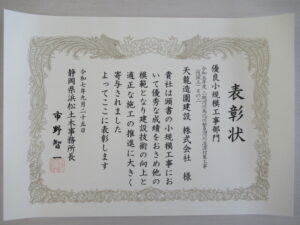 表彰状
優良小規模工事部門
天龍造園建設 株式会社 様
貴社は頭書の小規模工事にお
いて優秀な成績をおさめ他の
模範となり建設技術の向上と
適正な施工の推進に大きく
寄与されました
よってここに表彰します
令和七年九月二十五日
静岡県浜松土木事務所長
市野智一